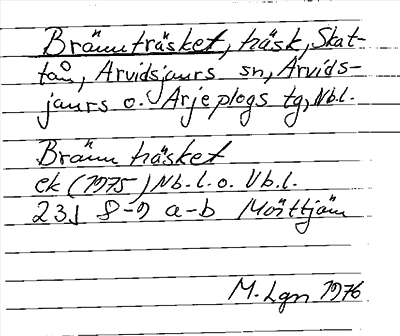 Brännträsket, träsk, Skat-
tån, Arvidsjaurs sn, Arvids-
jaurs o. Arjeplogs tg, Nb.l.
Bränn träsket
ek (1975) Nb.l. o. Vb.l.
23J 8-9 a-b Mörttjärn
M. Lgn 1976